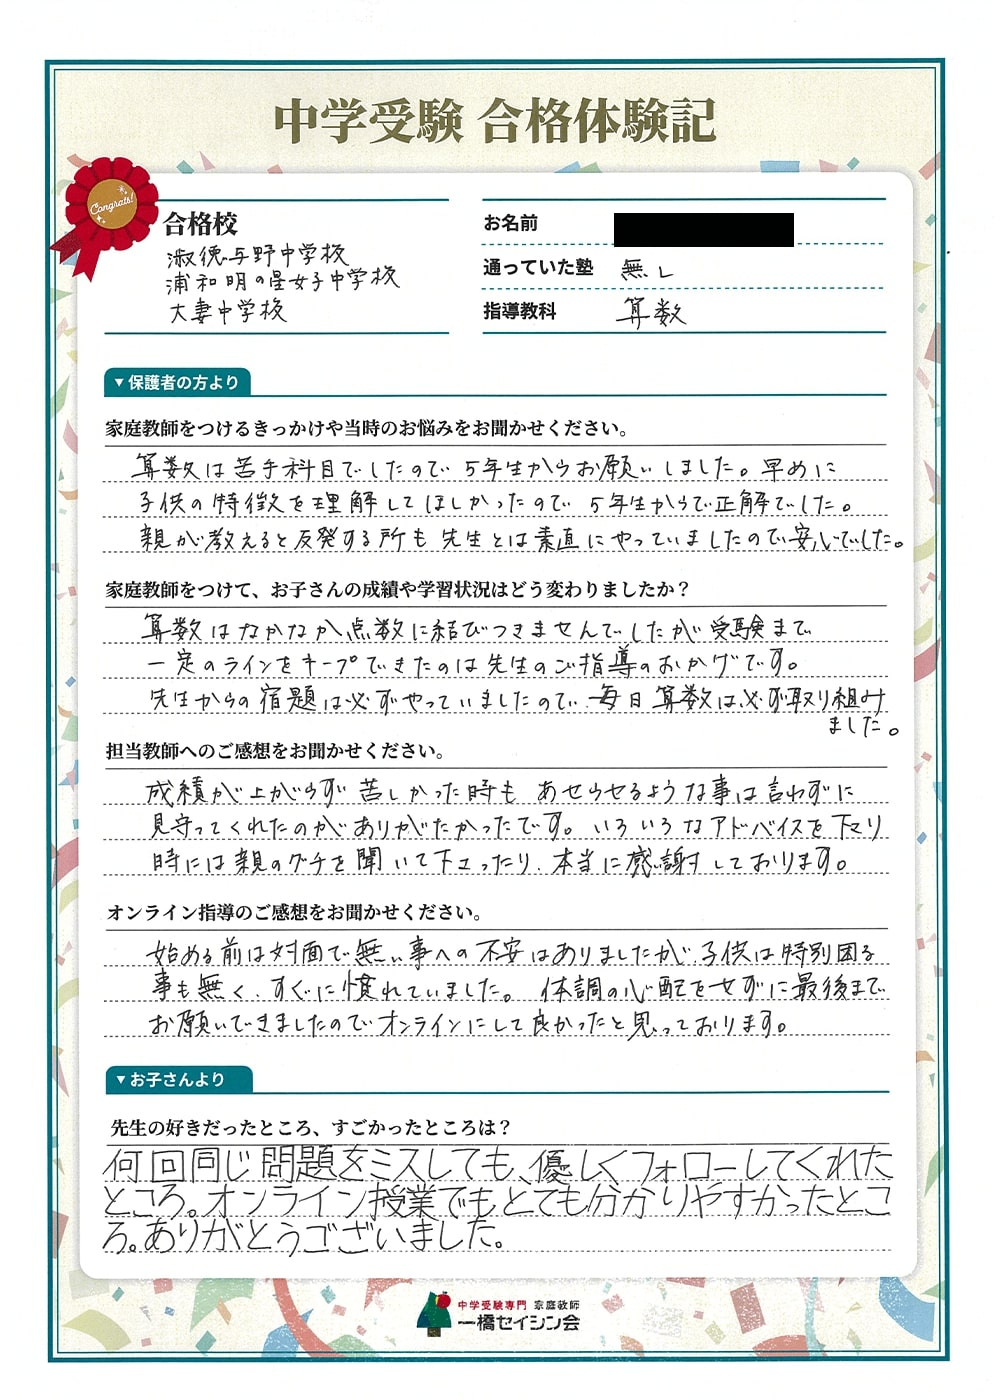 中学受験 合格体験記
Congrats!
合格校
淑徳与野中学校
浦和明の星女子中学校
大妻中学校
お名前
通っていた塾 無し
指導教科 算数
▼保護者の方より
家庭教師をつけるきっかけや当時のお悩みをお聞かせください。
算数は苦手科目でしたので 5年生からお願いしました。早めに
子供の特徴を理解してほしかったので 5年生からで正解でした。
親が教えると反発する所も 先生とは素直にやっていましたので安心でした。
家庭教師をつけて、お子さんの成績や学習状況はどう変わりましたか？
算数はなかなか点数に結びつきませんでしたが 受験まで
一定のラインをキープできたのは先生のご指導のおかげです。
先生からの宿題は必ずやっていましたので 毎日算数は必ず取り組み
ました。
担当教師へのご感想をお聞かせください。
成績が上がらず苦しかった時も あせらせるような事は言わずに
見守ってくれたのがありがたかったです。いろいろなアドバイスを下さり
時には親のグチを聞いて下さったり、本当に感謝しております。
オンライン指導のご感想をお聞かせください。
始める前は対面で無い事への不安はありましたが、子供は特別困る
事も無く、すぐに慣れていました。体調の心配をせずに最後まで
お願いできましたのでオンラインにして良かったと思っております。
▼お子さんより
先生の好きだったところ、すごかったところは？
何回同じ問題をミスしても、優しくフォローしてくれた
ところ。オンライン授業でもとても分かりやすかったとこ
ろ。ありがとうございました。
中学受験専門 家庭教師
一橋セイシン会